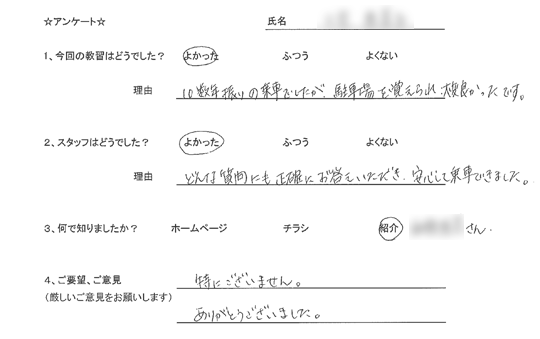 ☆アンケート☆ 氏名
1、今回の教習はどうでした? よかった ふつう よくない
理由 10数年振りの乗車でしたが、駐車場を覚えられ、大変良かったです。
2、スタッフはどうでした? よかった ふつう よくない
理由 どんな質問にも正確にお答えいただき、安心して乗車できました。
3、何で知りましたか? ホームページ チラシ 紹介 さん.
4、ご要望、ご意見 特にございません。
(厳しいご意見をお願いします)
ありがとうございました。